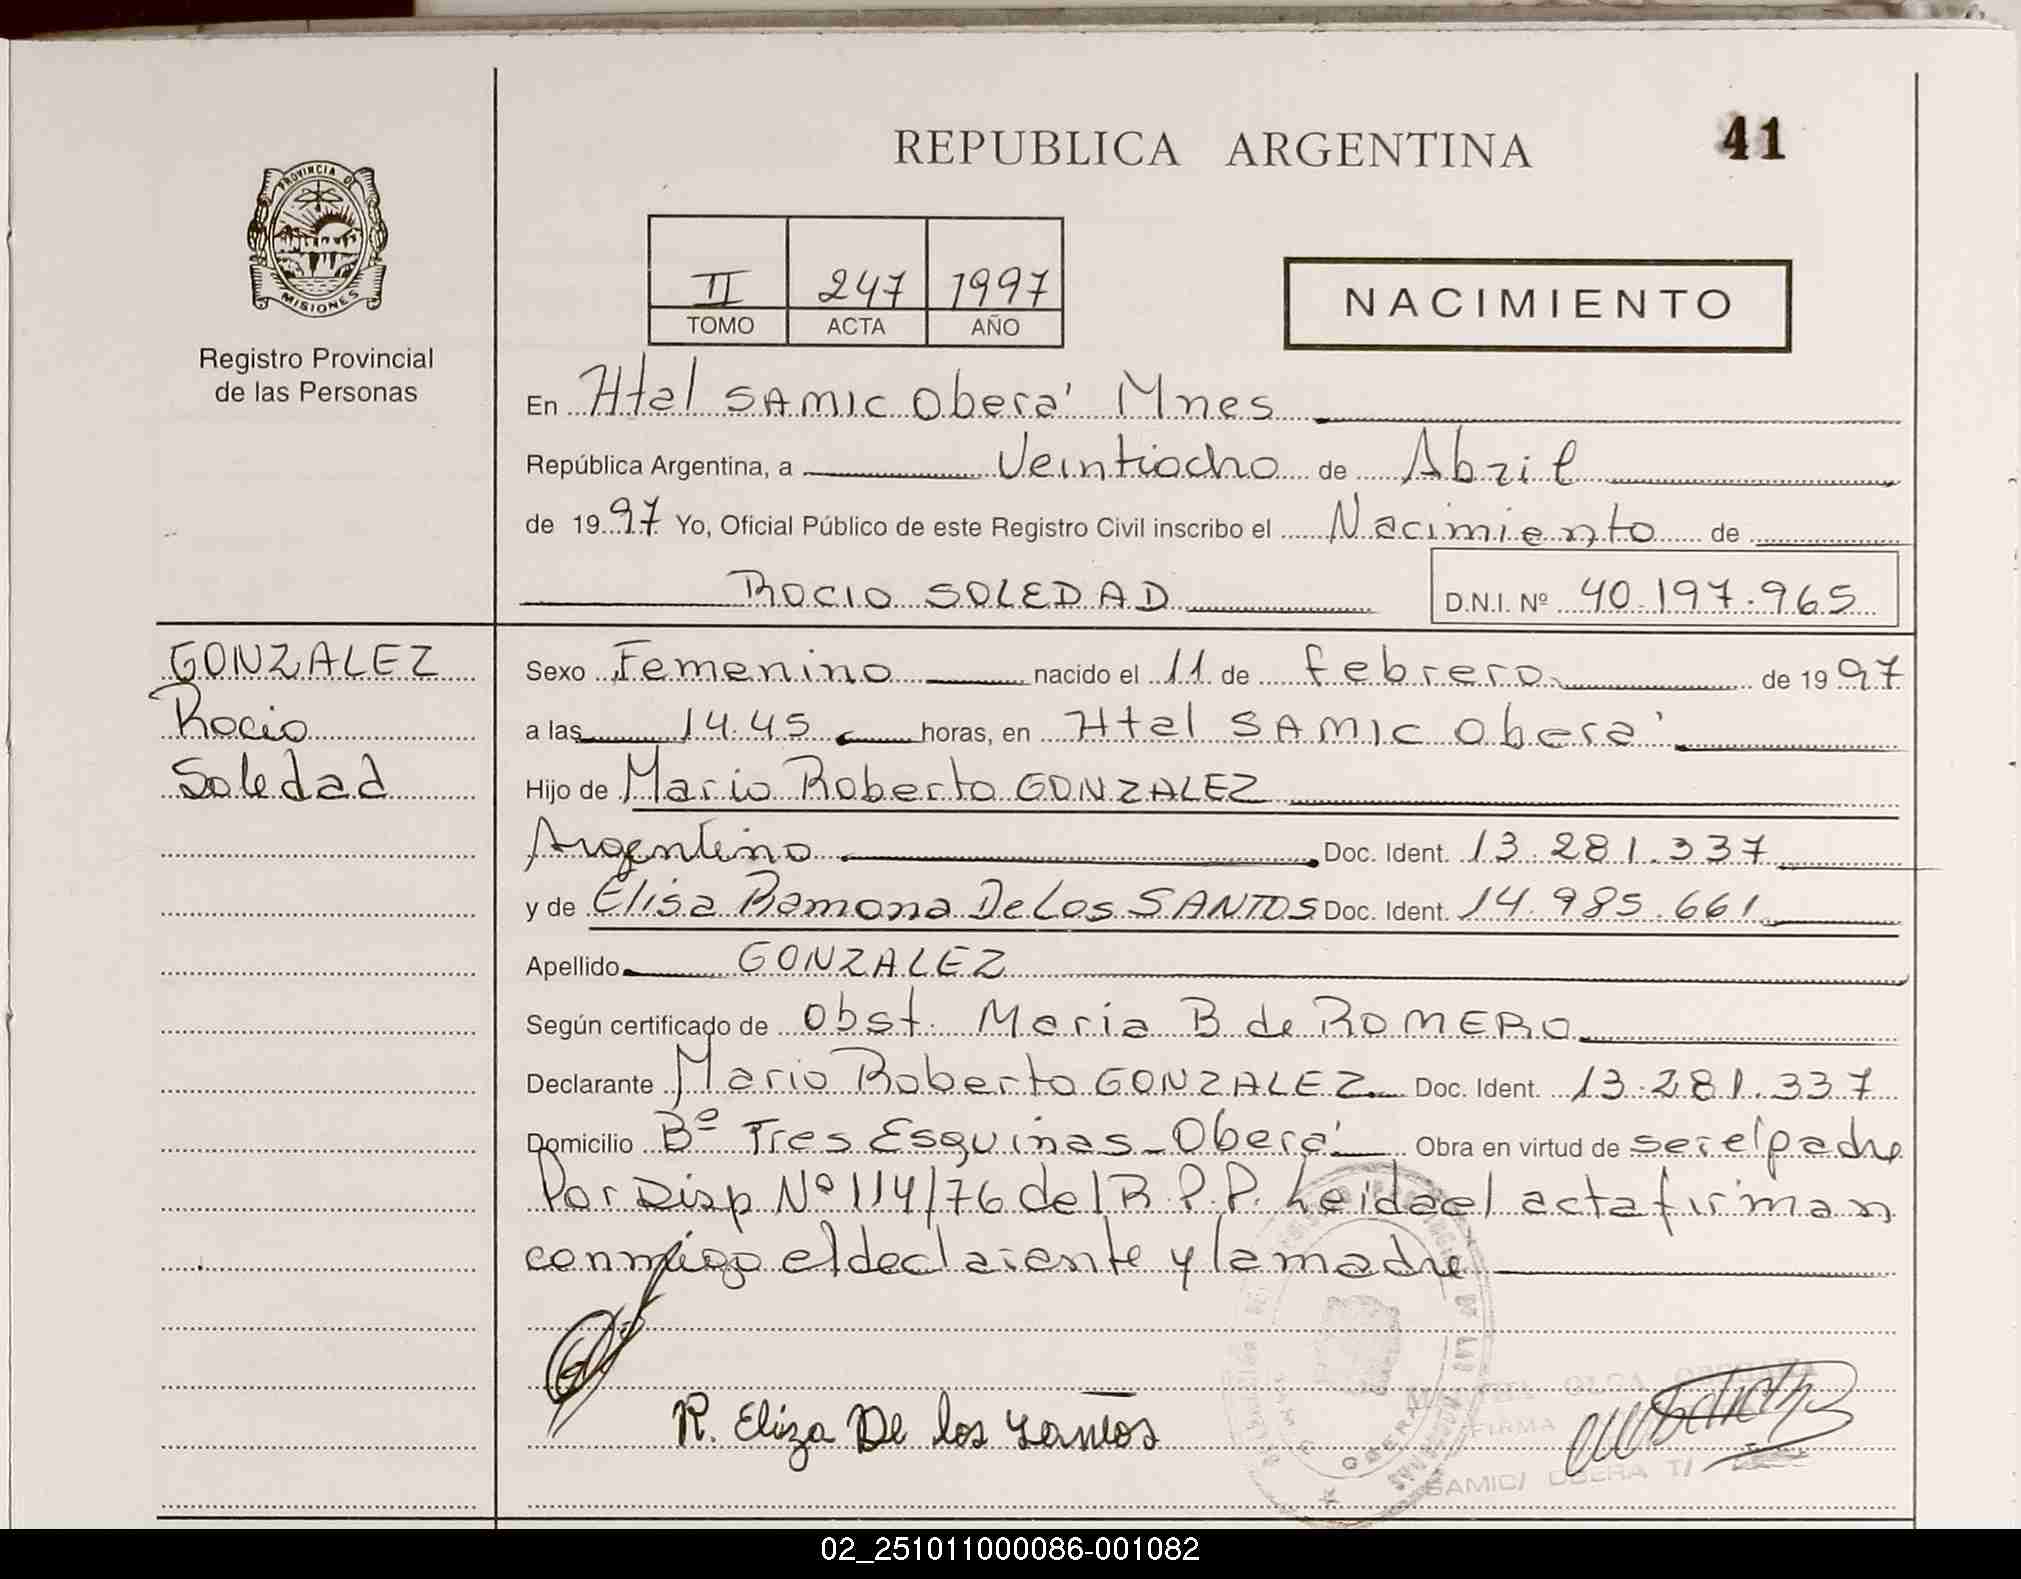 REPUBLICA ARGENTINA
41
PROVINCIA DE
MISIONES
Registro Provincial
de las Personas
II 247 1997
TOMO ACTA AÑO
NACIMIENTO
En Htal SAMIC Oberá Mnes
República Argentina, a Veintiocho de Abril
de 1997 Yo, Oficial Público de este Registro Civil inscribo el Nacimiento de
ROCIO SOLEDAD D.N.I. Nº 40.197.965
GONZALEZ
Rocio
Soledad
Sexo Femenino nacido el 11 de febrero de 1997
a las 14.45 horas, en Htal SAMIC Oberá
Hijo de Mario Roberto GONZALEZ
Argentino Doc. Ident. 13.281.337
y de Elisa Ramona De Los SANTOS Doc. Ident. 14.985.661
Apellido GONZALEZ
Según certificado de Obst. Maria B de ROMERO
Declarante Mario Roberto GONZALEZ Doc. Ident. 13.281.337
Domicilio Bº Tres Esquinas - Oberá Obra en virtud de ser el padre
Por Disp Nº 114/76 del R.P.P. Leida el acta firman
conmigo el declarante y la madre
R. Eliza De los Santos
FIRMA
SAMIC/ OBERA T/
OBERA
02_251011000086-001082